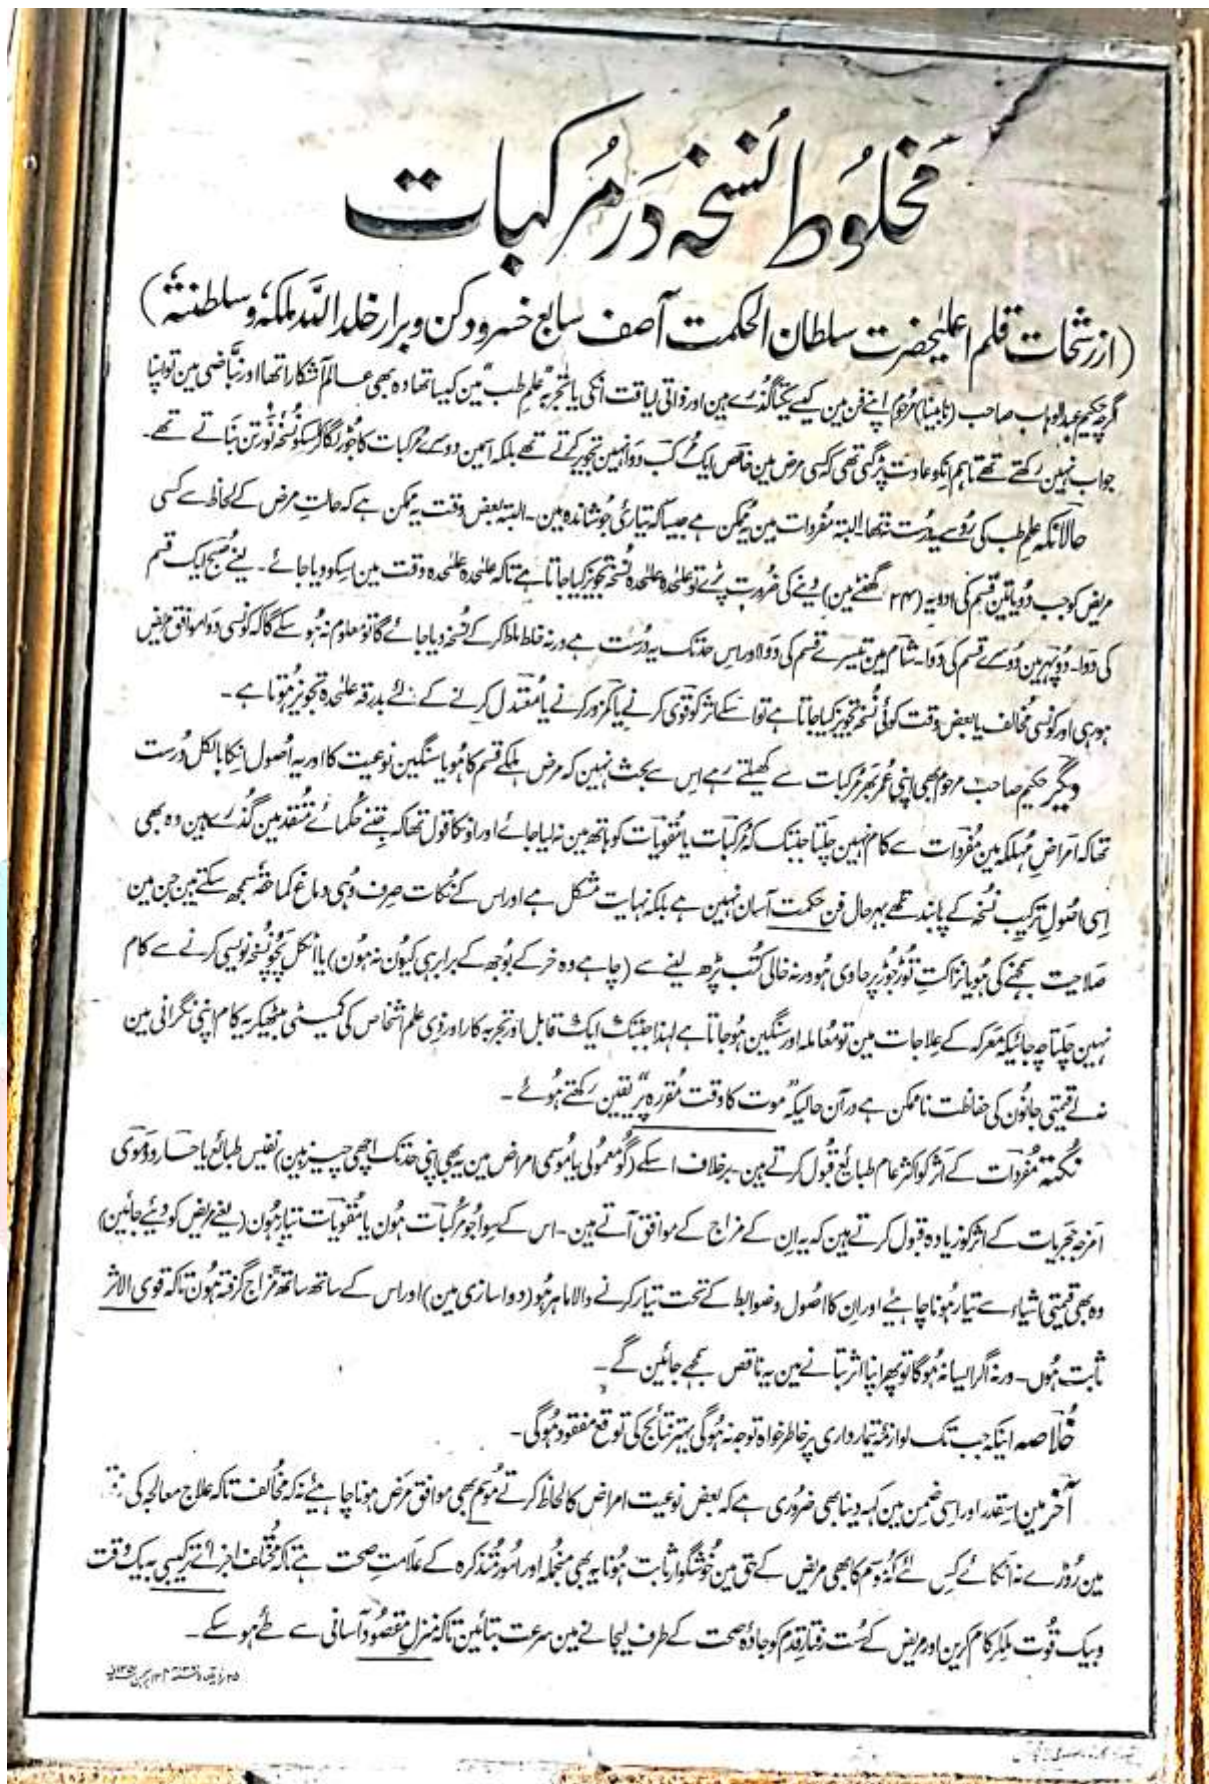 مخلوط نسخہ در مرکبات
(از رشحات قلم اعلیٰحضرت سلطان الحکمت آصف سابع خسرو دکن و برار خلد اللہ ملکہٗ و سلطنتہٗ)
گرچہ حکیم عبدالوہاب صاحب (نابینا) مرحوم اپنے فن مین کیسے یکتا گذرے ہین اور ذاتی لیاقت انکی یا تجربہ "علم طب" مین کیسا تھا وہ بھی عالم آشکارا تھا اور نباضی مین تو اپنا
جواب نہین رکھتے تھے تاہم انکو عادت پڑ گئی تھی کہ کسی مرض مین خاص ایک مرکب دوا نہین تجویز کرتے تھے بلکہ اسمین دوسرے مرکبات کا جوڑ لگا کر اسکو نسخۂ نورتن بناتے تھے۔
حالانکہ علم طب کی رو سے یہ درست نتھا۔ البتہ مفردات مین یہ ممکن ہے جیسا کہ تیاری جوشاندہ مین۔ البتہ بعض وقت یہ ممکن ہے کہ حالت مرض کے لحاظ سے کسی
مریض کو جب دو یا تین قسم کی ادویہ (۲۴ گھنٹے مین) دینے کی ضرورت پڑے تو علٰحدہ علٰحدہ نسخہ تجویز کیا جاتا ہے تاکہ علٰحدہ علٰحدہ وقت مین اسکو دیا جائے۔ یعنے صبح ایک قسم
کی دوا۔ دوپہر مین دوسرے قسم کی دوا۔ شام مین تیسرے قسم کی دوا اور اس حد تک یہ درست ہے ورنہ خلط ملط کر کے نسخہ دیا جائے گا تو معلوم نہ ہو سکے گا کہ کونسی دوا موافق مریض
ہو رہی اور کونسی مخالف یا بعض وقت کوئی نسخہ تجویز کیا جاتا ہے تو اسکے اثر کو قوی کرنے یا کمزور کرنے یا معتدل کرنے کے لئے بدرقہ علٰحدہ تجویز ہوتا ہے۔
دیگر حکیم صاحب مرحوم بھی اپنی عمر بھر مرکبات سے کھیلتے رہے اس سے بحث نہین کہ مرض ہلکے قسم کا ہو یا سنگین نوعیت کا اور یہ اصول انکا بالکل درست
تھا کہ امراض مہلکہ مین مفردات سے کام نہین چلتا جبتک کہ مرکبات یا مقویات کو ہاتھ مین نہ لیا جائے اور انکا قول تھا کہ جتنے حکمائے متقدمین گذرے ہین وہ بھی
اسی اصول ترکیب نسخہ کے پابند تھے بہر حال فن حکمت آسان نہین ہے بلکہ نہایت مشکل ہے اور اس کے نکات صرف وہی دماغ کماحقہٗ سمجھ سکتے ہین جن مین
صلاحیت سمجھنے کی ہو یا نزاکت توڑ جوڑ پر حاوی ہو ورنہ خالی کتب پڑھ لینے سے (چاہے وہ خر کے بوجھ کے برابر ہی کیون نہ ہون) یا اٹکل پچو نسخہ نویسی کرنے سے کام
نہین چلتا چہ جائیکہ معرکہ کے علاجات مین تو معاملہ اور سنگین ہو جاتا ہے لہذا جبتک ایک قابل اور تجربہ کار اور ذی علم اشخاص کی کمیٹی بیٹھیکر یہ کام اپنی نگرانی مین
نہ لے قیمتی جانون کی حفاظت ناممکن ہے در آن حالیکہ "موت کا وقت مقررہ پر" یقین رکھتے ہوئے۔
نکتہ مفردات کے اثر کو اکثر عام طبائع قبول کرتے ہین۔ برخلاف اسکے (گو معمولی یا موسمی امراض مین یہ بھی اپنی حد تک اچھی چیز ہین) نفیس طبائع یا حار و دموی
امزجہ حجریات کے اثر کو زیادہ قبول کرتے ہین کہ یہ ان کے مزاج کے موافق آتے ہین۔ اس کے سوا جو مرکبات ہون یا مقویات تیار ہون (یعنے مریض کو دیئے جائین)
وہ بھی قیمتی اشیاء سے تیار ہونا چاہئے اور ان کا اصول و ضوابط کے تحت تیار کرنے والا ماہر ہو (دوا سازی مین) اور اس کے ساتھ ساتھ مزاج گرفتہ ہون تاکہ قوی الاثر
ثابت ہوں۔ ورنہ اگر ایسا نہ ہوگا تو پھر اپنا اثر بتانے مین یہ ناقص سمجھے جائین گے۔
خلاصہ اینکہ جب تک لوازمۂ تیمارداری پر خاطر خواہ توجہ نہ ہوگی بہتر نتائج کی توقع مفقود ہوگی۔
آخر مین اسقدر اور اسی ضمن مین کہہ دینا بھی ضروری ہے کہ بعض نوعیت امراض کا لحاظ کرتے موسم بھی موافق مرض ہونا چاہیئے نہ کہ مخالف تاکہ علاج معالجہ کی
مین روڑے نہ اٹکائے کس لئے کہ موسم کا بھی مریض کے حق مین خوشگوار ثابت ہونا یہ بھی منجملہ اور امور متذکرہ کے علامت صحت ہے تاکہ مختلف اجزائے ترکیبی بہ یک وقت
و بیک قوت ملکر کام کرین اور مریض کے سست رفتار قدم کو جادۂ صحت کے طرف لیجانے مین سرعت بتائین تاکہ منزل مقصود آسانی سے طے ہو سکے۔